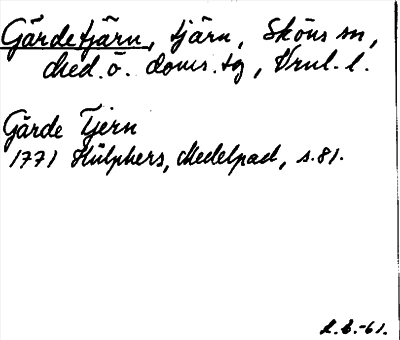 Gärdetjärn, tjärn, Sköns sn,
Med. ö. doms. tg, Vrnl. l.
Gärde Tjern
1771 Hülphers, Medelpad, s. 81.
L.E.-61.